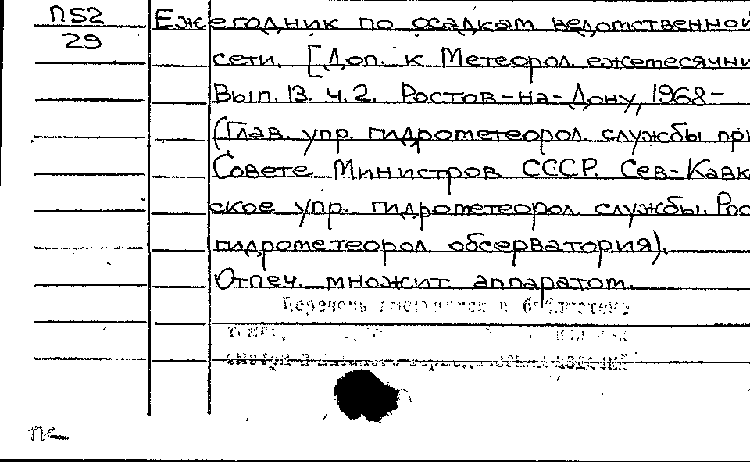 П52
29
Ежегодник по осадкам ведомственной
сети. [Доп. к Метеорол ежемесячни
Вып. 13. ч. 2. Ростов-на-Дону, 1968-
(Глав. упр. гидрометеорол. службы при
Совете Министров СССР. Сев-Кавк
ское упр. гидрометеорол службы. Рос
гидрометеорол обсерватория).
Отпеч. множит аппаратом.
Перечень в библиотеку
пе